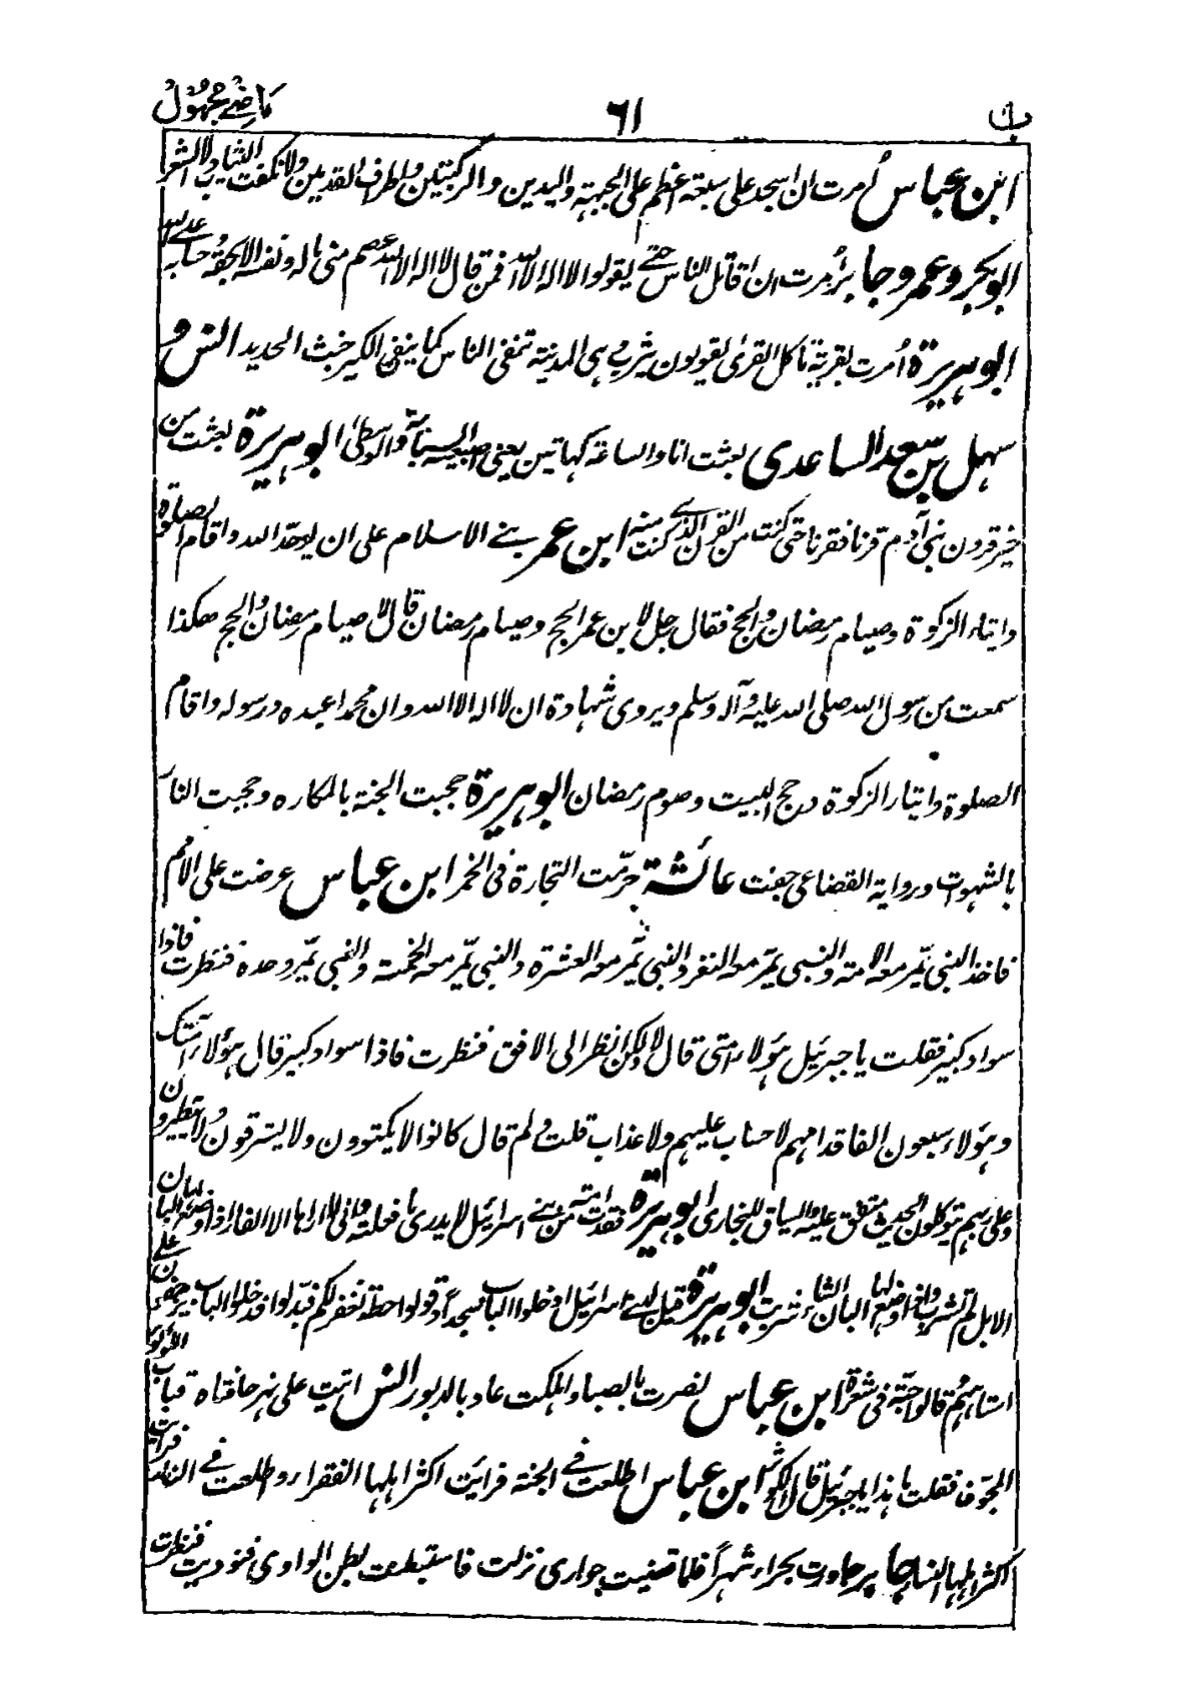 ماضی مجہول ٦١ ب
ابن عباس اُمرت ان اسجد علی سبعة اعظم علی الجبهة والیدین والرکبتین واطراف القدمین ولا نکفت الثیاب ولا الشعر
ابو بکر وعمر وجابر اُمرت ان اقاتل الناس حتے یقولوا لا اله الا الله فمن قال لا اله الا الله عصم منی ماله ونفسه الا بحقه وحسابه علی الله
ابو ہریرة اُمرت بقریة تاکل القریٰ یقولون یثرب وہی المدینة تنفی الناس کما ینفی الکیر خبث الحدید انس و
سہل بن سعد الساعدی بعثت انا والساعة کہاتین یعنی اصبعیه السبابة والوسطیٰ ابو ہریرة بعثت من
خیر قرون بنی آدم قرنا فقرنا حتی کنت من القرن الذی کنت منه ابن عمر بنے الاسلام علی ان یوحّد الله واقام الصلوة
وایتاء الزکوة وصیام رمضان والحج فقال رجل لابن عمر الحج وصیام رمضان قال لا صیام رمضان والحج ھکذا
سمعت من رسول الله صلی الله علیه وآله وسلم ویروی شہادة ان لا اله الا الله وان محمدا عبده ورسوله واقام
الصلوة وایتاء الزکوة وحج البیت وصوم رمضان ابو ہریرة حجبت الجنة بالمکاره وحجبت النار
بالشہوات وروایة القضاعی حفت عائشة حرّمت التجارة فی الخمر ابن عباس عرضت علی الامم
فاخذ النبی یمّر معه الامة والنبی یمّر معه النفر والنبی یمّر معه العشرة والنبی یمّر معه الخمسة والنبی یمّر وحده فنظرت فاذا
سواد کبیر فقلت یا جبرئیل ہؤلاء امتی قال لا ولکن انظر الی الافق فنظرت فاذا سواد کبیر قال ہؤلاء امتک
وہؤلاء سبعون الفا قدامہم لا حساب علیہم ولا عذاب قلت ولم قال کانوا لا یکتوون ولا یسترقون ولا یتطیرون
وعلی ربہم یتوکلون الحدیث متفق علیه والسیاق للبخاری ابو ہریرة فقدت امة من بنے اسرائیل لا یدری ما فعلت وانی لا اراہا الا الفار اذا وضع لہا البان
الابل لم تشرب واذا وضع لہا البان الشاء شربت ابو ہریرة قیل لبنے اسرائیل ادخلوا الباب سجداً وقولوا حطة نغفر لکم فبدّلوا فدخلوا الباب یزحفون علی
استاہہم وقالوا حبّة فی شعرة ابن عباس نصرت بالصبا واہلکت عاد بالدبور انس اتیت علی نہر حافتاه قباب اللؤلؤ
المجوّف فقلت ما ہذا یا جبرئیل قال الکوثر ابن عباس اطلعت فی الجنة فرایت اکثر اہلہا الفقراء واطلعت فی النار فرایت
اکثر اہلہا النساء جابر جاورت بحراء شہراً فلما قضیت جواری نزلت فاستبطنت بطن الوادی فنودیت فنظرت